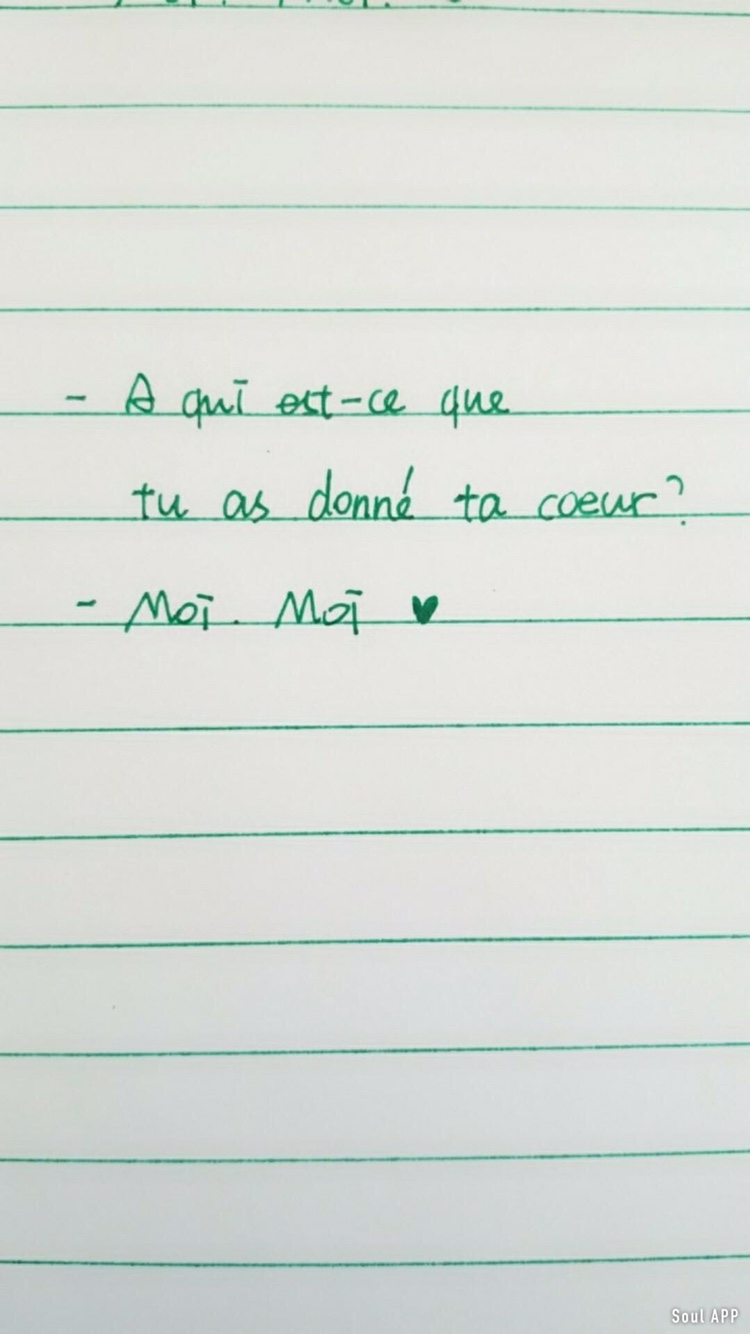 - A qui est-ce que
tu as donné ta coeur?
- Moi. Moi ♥
Soul APP